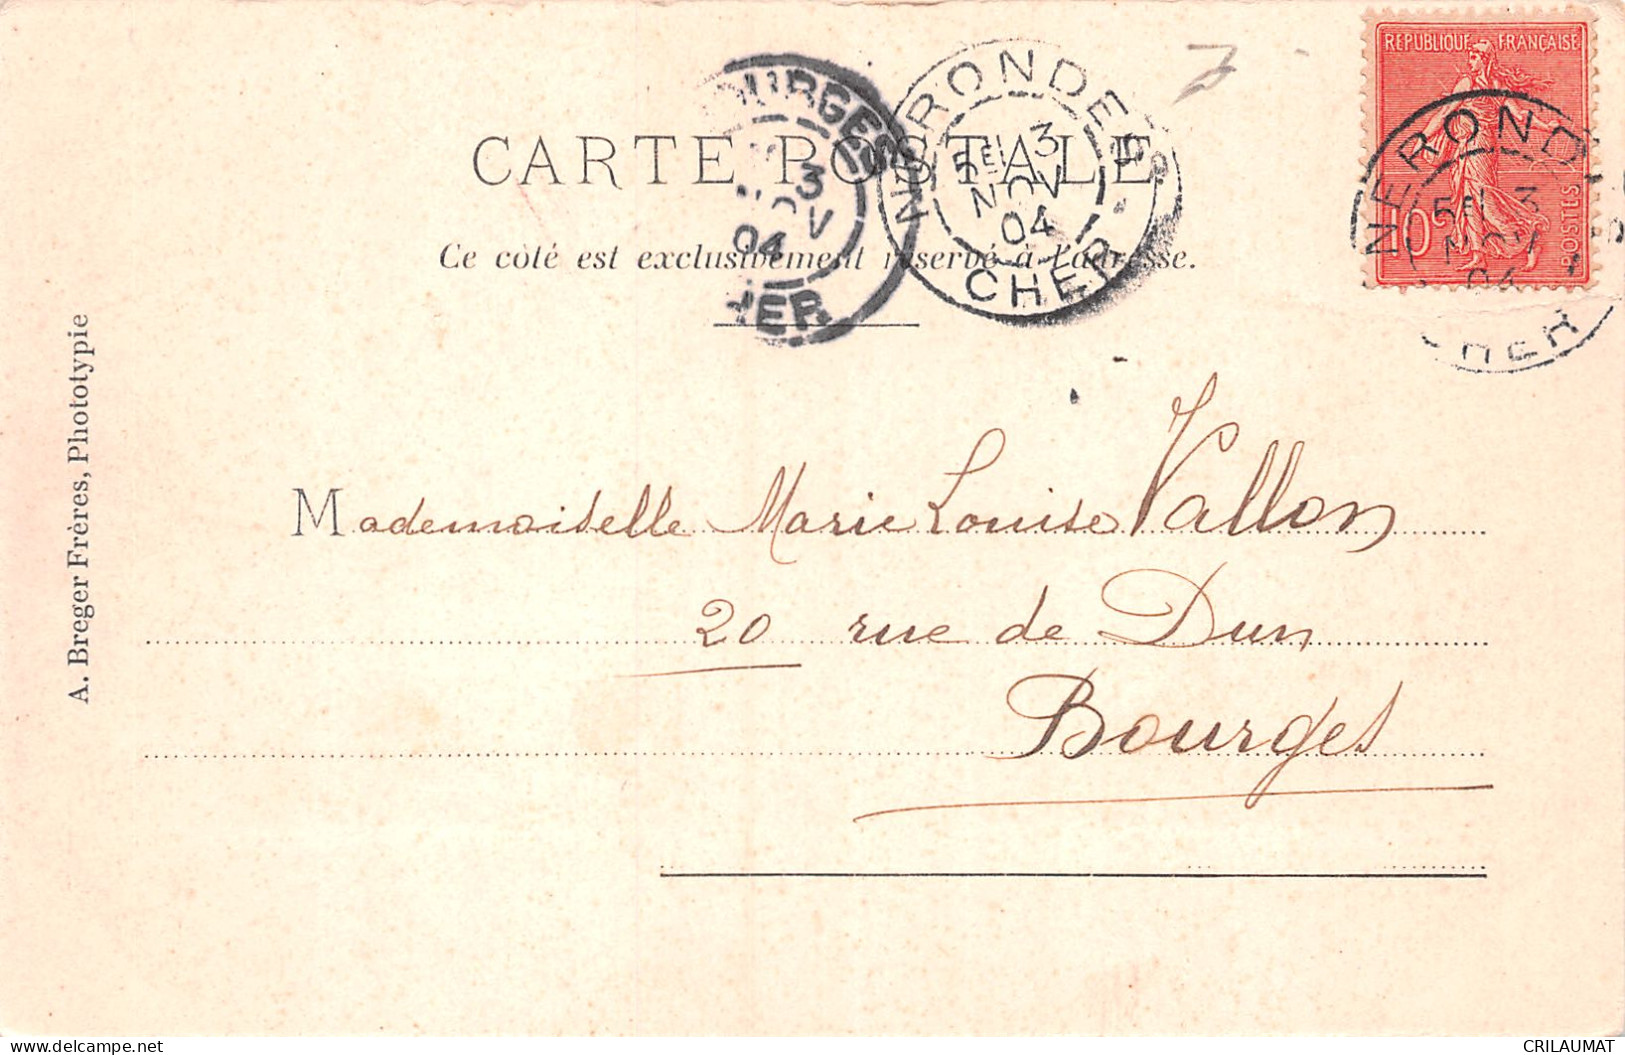 RÉPUBLIQUE FRANÇAISE
10c
POSTES
NERONDES
5E 3
NOV
04
CHER
BOURGES
3
NOV
04
CHER
NERONDES
5E 3
NOV
04
CHER
CARTE POSTALE
Ce côté est exclusivement réservé à l'adresse.
A. Breger Frères, Phototypie
Mademoiselle Marie Louise Vallon
20 rue de Dun
Bourges
www.delcampe.net
CRILAUMAT